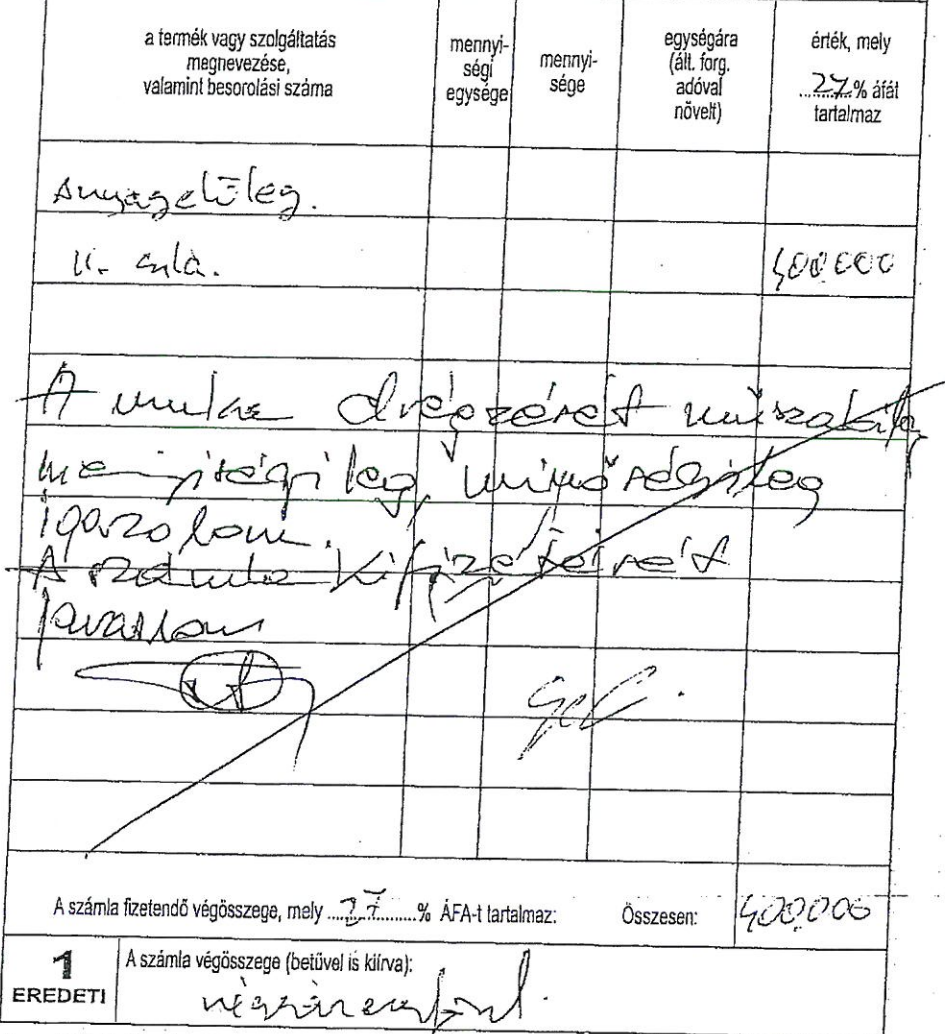 a termék vagy szolgáltatás
megnevezése,
valamint besorolási száma
mennyi-
ségi
egysége
mennyi-
sége
egységára
(ált. forg.
adóval
növelt)
érték, mely
27 % áfát
tartalmaz
Anyagelőleg.
400000
A munka elvégzését műszakilag
mennyiségileg, minőségileg
igazolom.
A számla kifizetését
javaslom
A számla fizetendő végösszege, mely 27 % ÁFA-t tartalmaz: Összesen: 400.000
1
EREDETI
A számla végösszege (betűvel is kiírva):